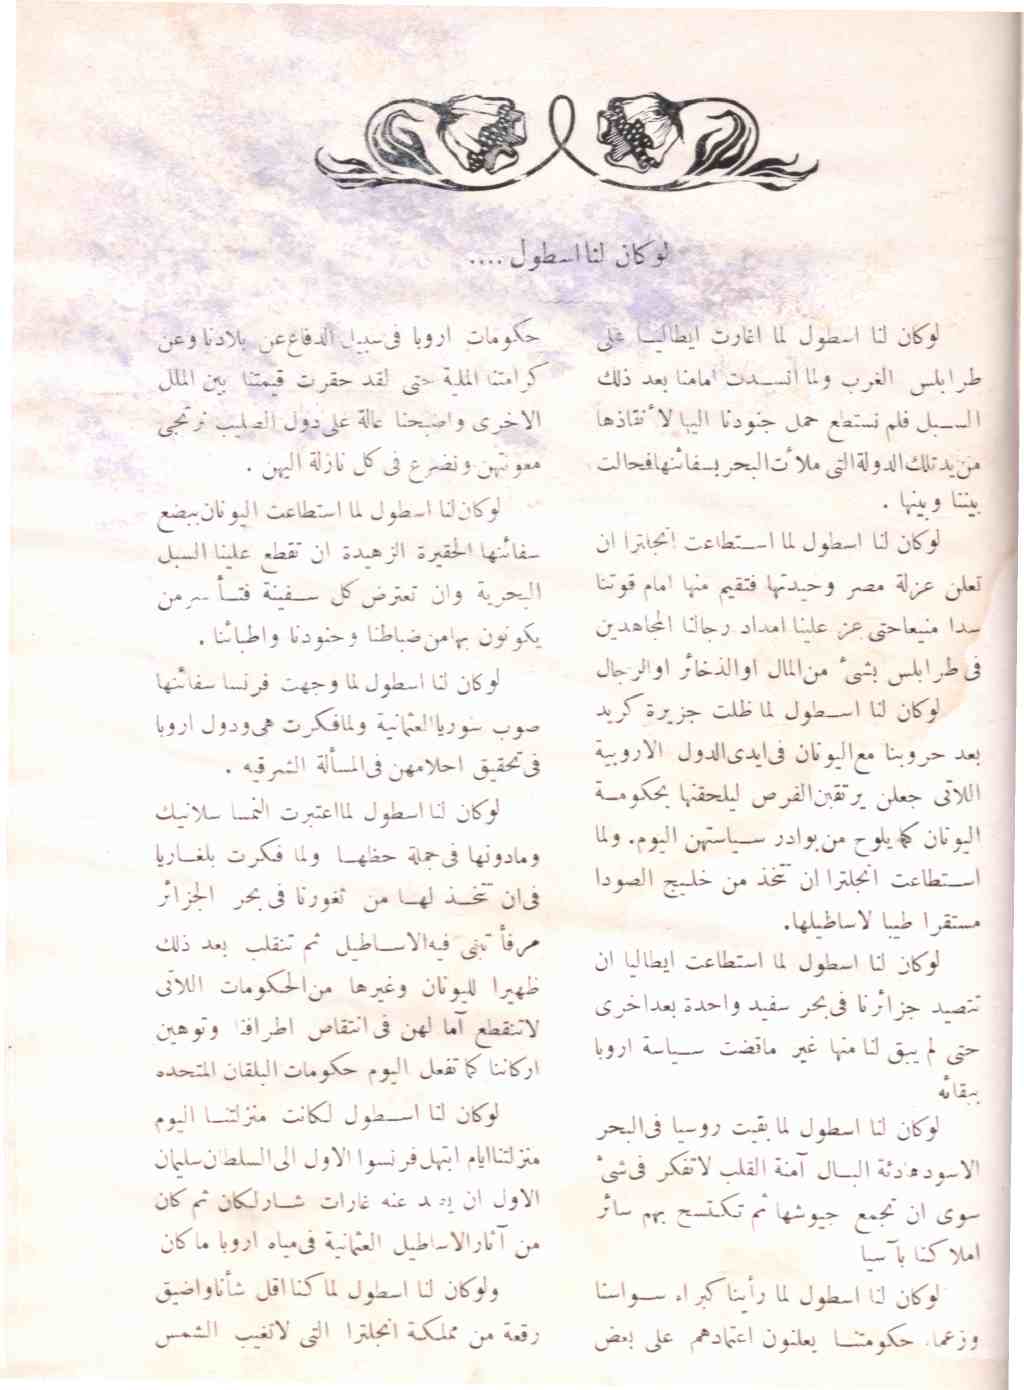 لوكان لنا اسطول ....
لوكان لنا اسطول لما اغارت ايطاليـا على
طرابلس الغرب ولما انسـدت امامنا بعد ذلك
السـبل فلم نستطع حمل جنودنا اليها لأنقاذها
من يد تلك الدولة التى ملأت البحر بسفائنها فحالت
بيننا وبينها .
لوكان لنا اسطول لما اسـتطاعت انجلترا ان
تعلن عزلة مصر وحيدتها فتقيم منها امام قوتنا
سدا منيعا حتى عز علينا امداد رجالنا المجاهدين
فى طرابلس بشىء من المال او الذخائر او الرجال
لوكان لنا اسـطول لما ظلت جزيرة كريد
بعد حروبنا مع اليونان فى ايدى الدول الاروبية
اللاتى جعلن يرتقبن الفرص ليلحقنها بحكومـة
اليونان كما يلوح من بوادر سـياستهن اليوم. ولما
اسـتطاعت انجلترا ان تتخذ من خليج الصودا
مستقرا طيبا لاساطيلها.
لوكان لنا اسطول لما استطاعت ايطاليا ان
تتصيد جزائرنا فى بحر سفيد واحدة بعد اخرى
حتى لم يبق لنا منها غير ماقضت سـياسة اروبا
ببقائه
لوكان لنا اسطول لما بقيت روسيا فى البحر
الاسود هادئة البـال آمنة القلب لاتفكر فى شىء
سوى ان تجمع جيوشها ثم تكتسح بهم سائر
املاكنا بآسيا
لوكان لنا اسطول لما رأينا كبراء سـواسنا
وزعماء حكومتنـا يعلنون اعتمادهم على بعض
حكومات اروبا فى سبيل الدفاع عن بلادنا وعن
كرامتنا الملية حتى لقد حقرت قيمتنا بين الملل
الاخرى واصبحنا عالة على دول الصليب نرتجى
معونتهن ونضرع فى كل نازلة اليهن .
لوكان لنا اسطول لما استطاعت اليونان ببضع
سفائنها الحقيرة الزهيدة ان تقطع علينا السبل
البحرية وان تعترض كل سـفينة فتـأسر من
يكونون بها من ضباطنا وجنودنا واطبائنا .
لوكان لنا اسطول لما وجهت فرنسا سفائنها
صوب سوريا العثمانية ولما فكرت هى ودول اروبا
فى تحقيق احلامهن فى المسألة الشرقيه .
لوكان لنا اسطول لما اعتبرت النمسا سلانيك
ومادونها فى جملة حظهـا ولما فكرت بلغـاريا
فى ان تتخـذ لهـا من ثغورنا فى بحر الجزائر
مرفأ تبنى فيه الاسـاطيل ثم تنقلب بعد ذلك
ظهيرا لليونان وغيرها من الحكومات اللاتى
لاتنقطع آمالهن فى انتقاص اطرافنا وتوهين
اركاننا كما تفعل اليوم حكومات البلقان المتحده
لوكان لنا اسـطول لكانت منزلتنـا اليوم
منزلتنا ايام ابتهل فرنسوا الاول الى السلطان سليمان
الاول ان يصد عنه غارات شـارلكان ثم كان
من آثار الاساطيل العثمانية فى مياه اروبا ماكان
ولوكان لنا اسطول لما كنا اقل شأنا واضيق
رقعة من مملكة انجلترا التى لاتغيب الشمس